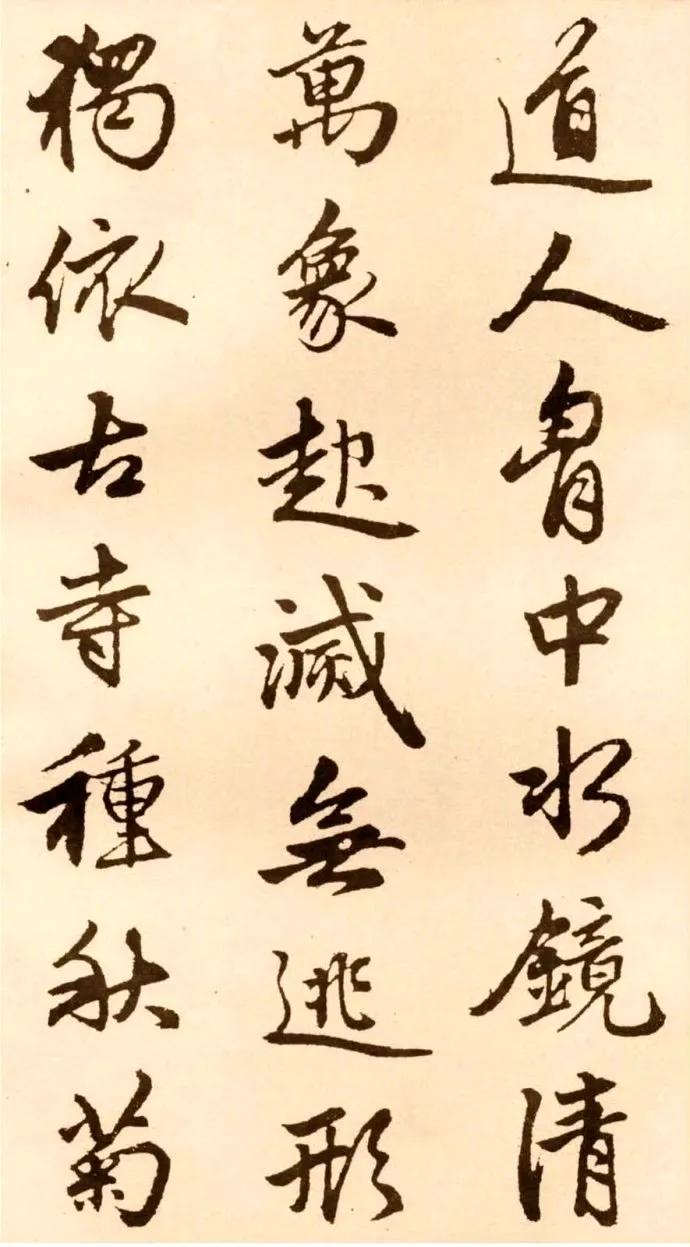 道人胷中水鏡清
萬象起滅無逃形
獨依古寺種秋菊